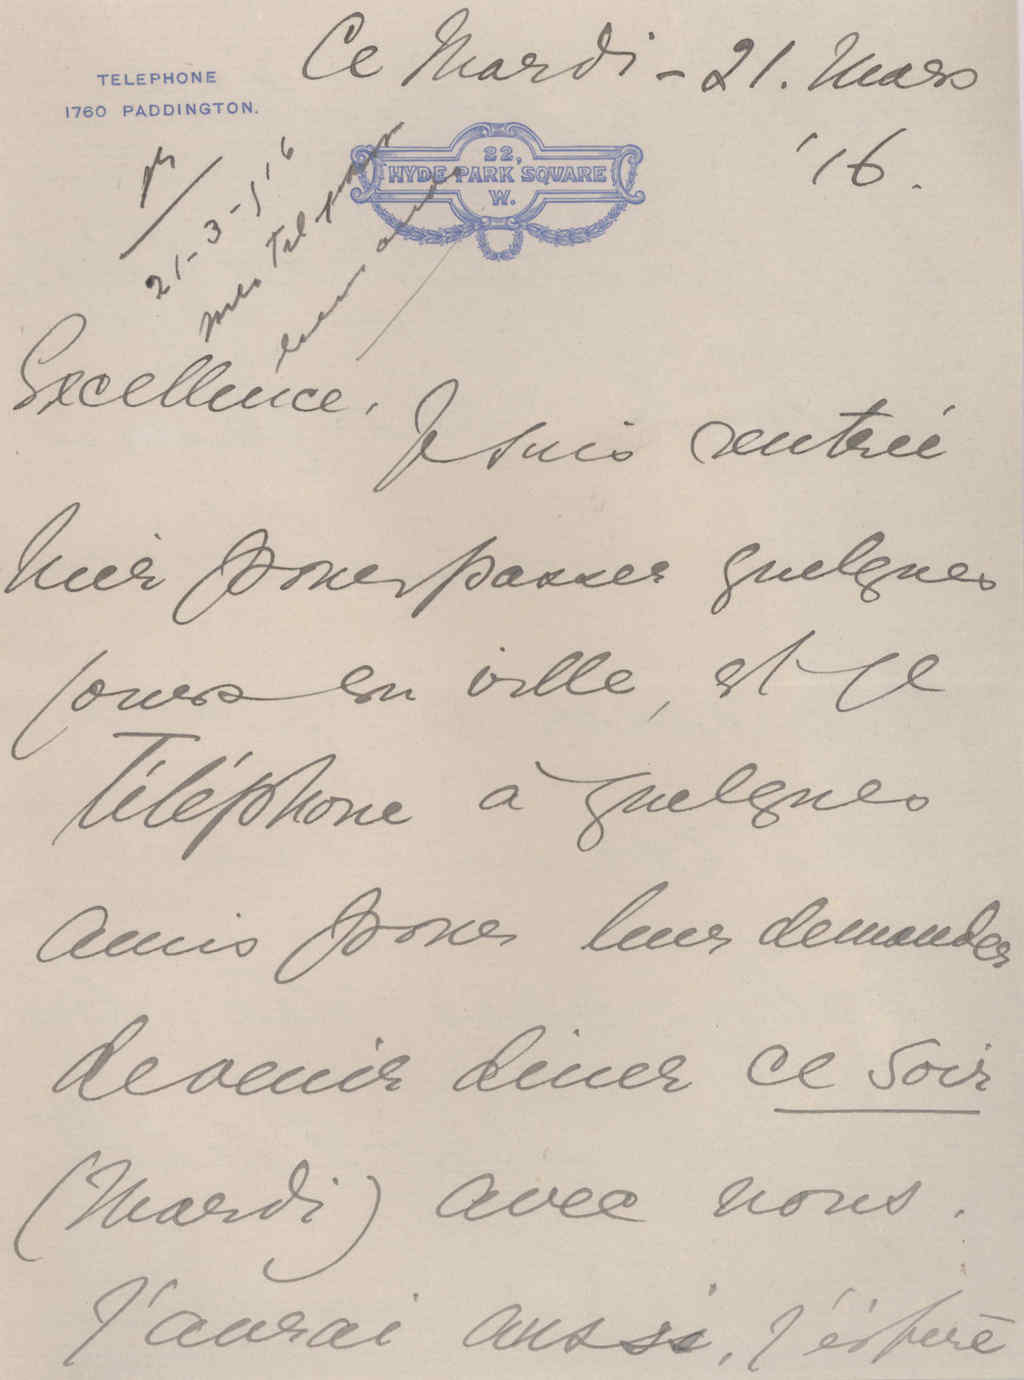 Ce Mardi - 21. Mars
'16.
TELEPHONE
1760 PADDINGTON.
22,
HYDE PARK SQUARE
W.
21-3-1'6
Excellence,
Je suis rentrée
hier pour passer quelques
jours en ville, et je
téléphone à quelques
amis pour leur demander
de venir diner ce soir
(Mardi) avec nous.
J'aurai aussi, j'éspère